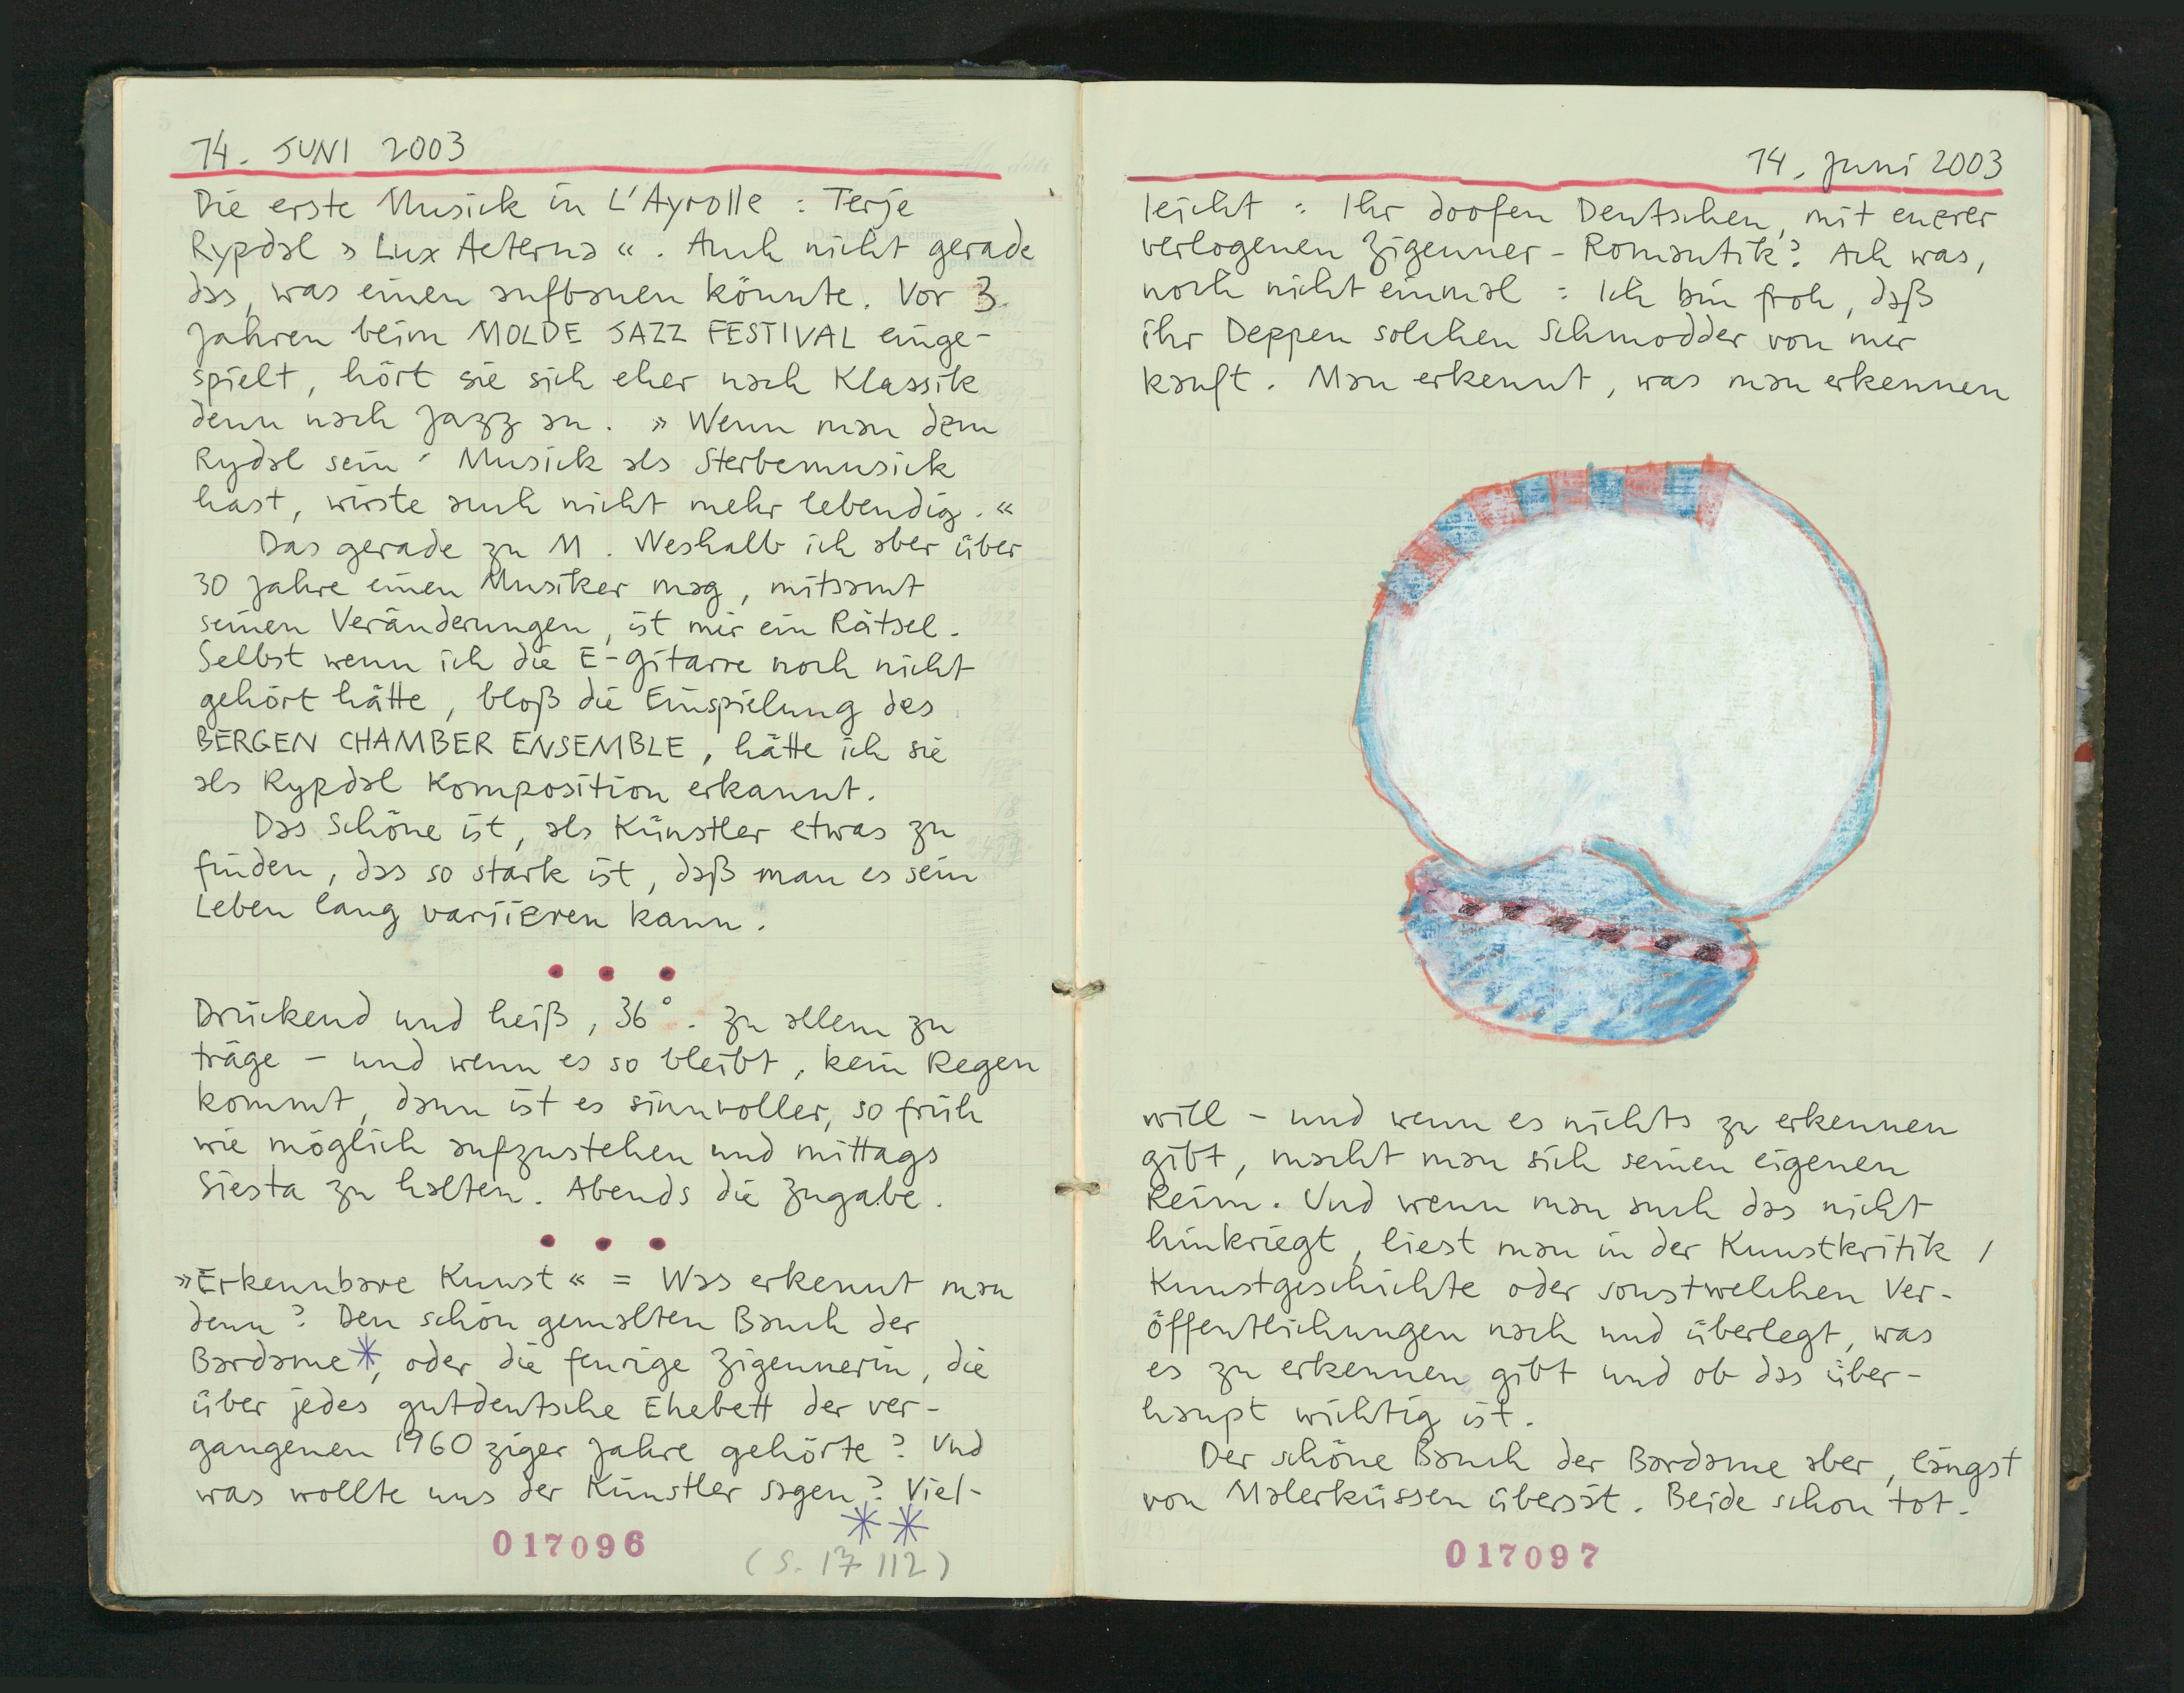 14. JUNI 2003
Die erste Musick in L'Ayrolle : Terje
Rypdal » Lux Aeterna «. Auch nicht gerade
das, was einen aufbauen könnte. Vor 3
Jahren beim MOLDE JAZZ FESTIVAL einge-
spielt, hört sie sich eher nach Klassik
denn nach Jazz an. » Wenn man dem
Rydal sein' Musick als Sterbemusick
hast, wirste auch nicht mehr lebendig. «
Das gerade zu M. Weshalb ich aber über
30 Jahre einen Musiker mag, mitsamt
seinen Veränderungen, ist mir ein Rätsel.
Selbst wenn ich die E-Gitarre noch nicht
gehört hätte, bloß die Einspielung des
BERGEN CHAMBER ENSEMBLE, hätte ich sie
als Rypdal Komposition erkannt.
Das Schöne ist, als Künstler etwas zu
finden, das so stark ist, daß man es sein
Leben lang variieren kann.
• • •
Drückend und heiß, 36°. Zu allem zu
träge – und wenn es so bleibt, kein Regen
kommt, dann ist es sinnvoller, so früh
wie möglich aufzustehen und mittags
Siesta zu halten. Abends die Zugabe.
• • •
»Erkennbare Kunst« = Was erkennt man
denn? Den schön gemalten Bauch der
Bardame*, oder die feurige Zigeunerin, die
über jedes gutdeutsche Ehebett der ver-
gangenen 1960ziger Jahre gehörte? Und
was wollte uns der Künstler sagen? Viel-
**
017096
(S. 17 112)
14. Juni 2003
leicht : Ihr doofen Deutschen, mit eurer
verlogenen Zigeuner-Romantik? Ach was,
noch nicht einmal : Ich bin froh, daß
ihr Deppen solchen Schmodder von mir
kauft. Man erkennt, was man erkennen
will – und wenn es nichts zu erkennen
gibt, macht man sich seinen eigenen
Reim. Und wenn man auch das nicht
hinkriegt, liest man in der Kunstkritik /
Kunstgeschichte oder sonstwelchen Ver-
öffentlichungen nach und überlegt, was
es zu erkennen gibt und ob das über-
haupt wichtig ist.
Der schöne Bauch der Bardame aber, längst
von Malerküssen übersät. Beide schon tot.
017097